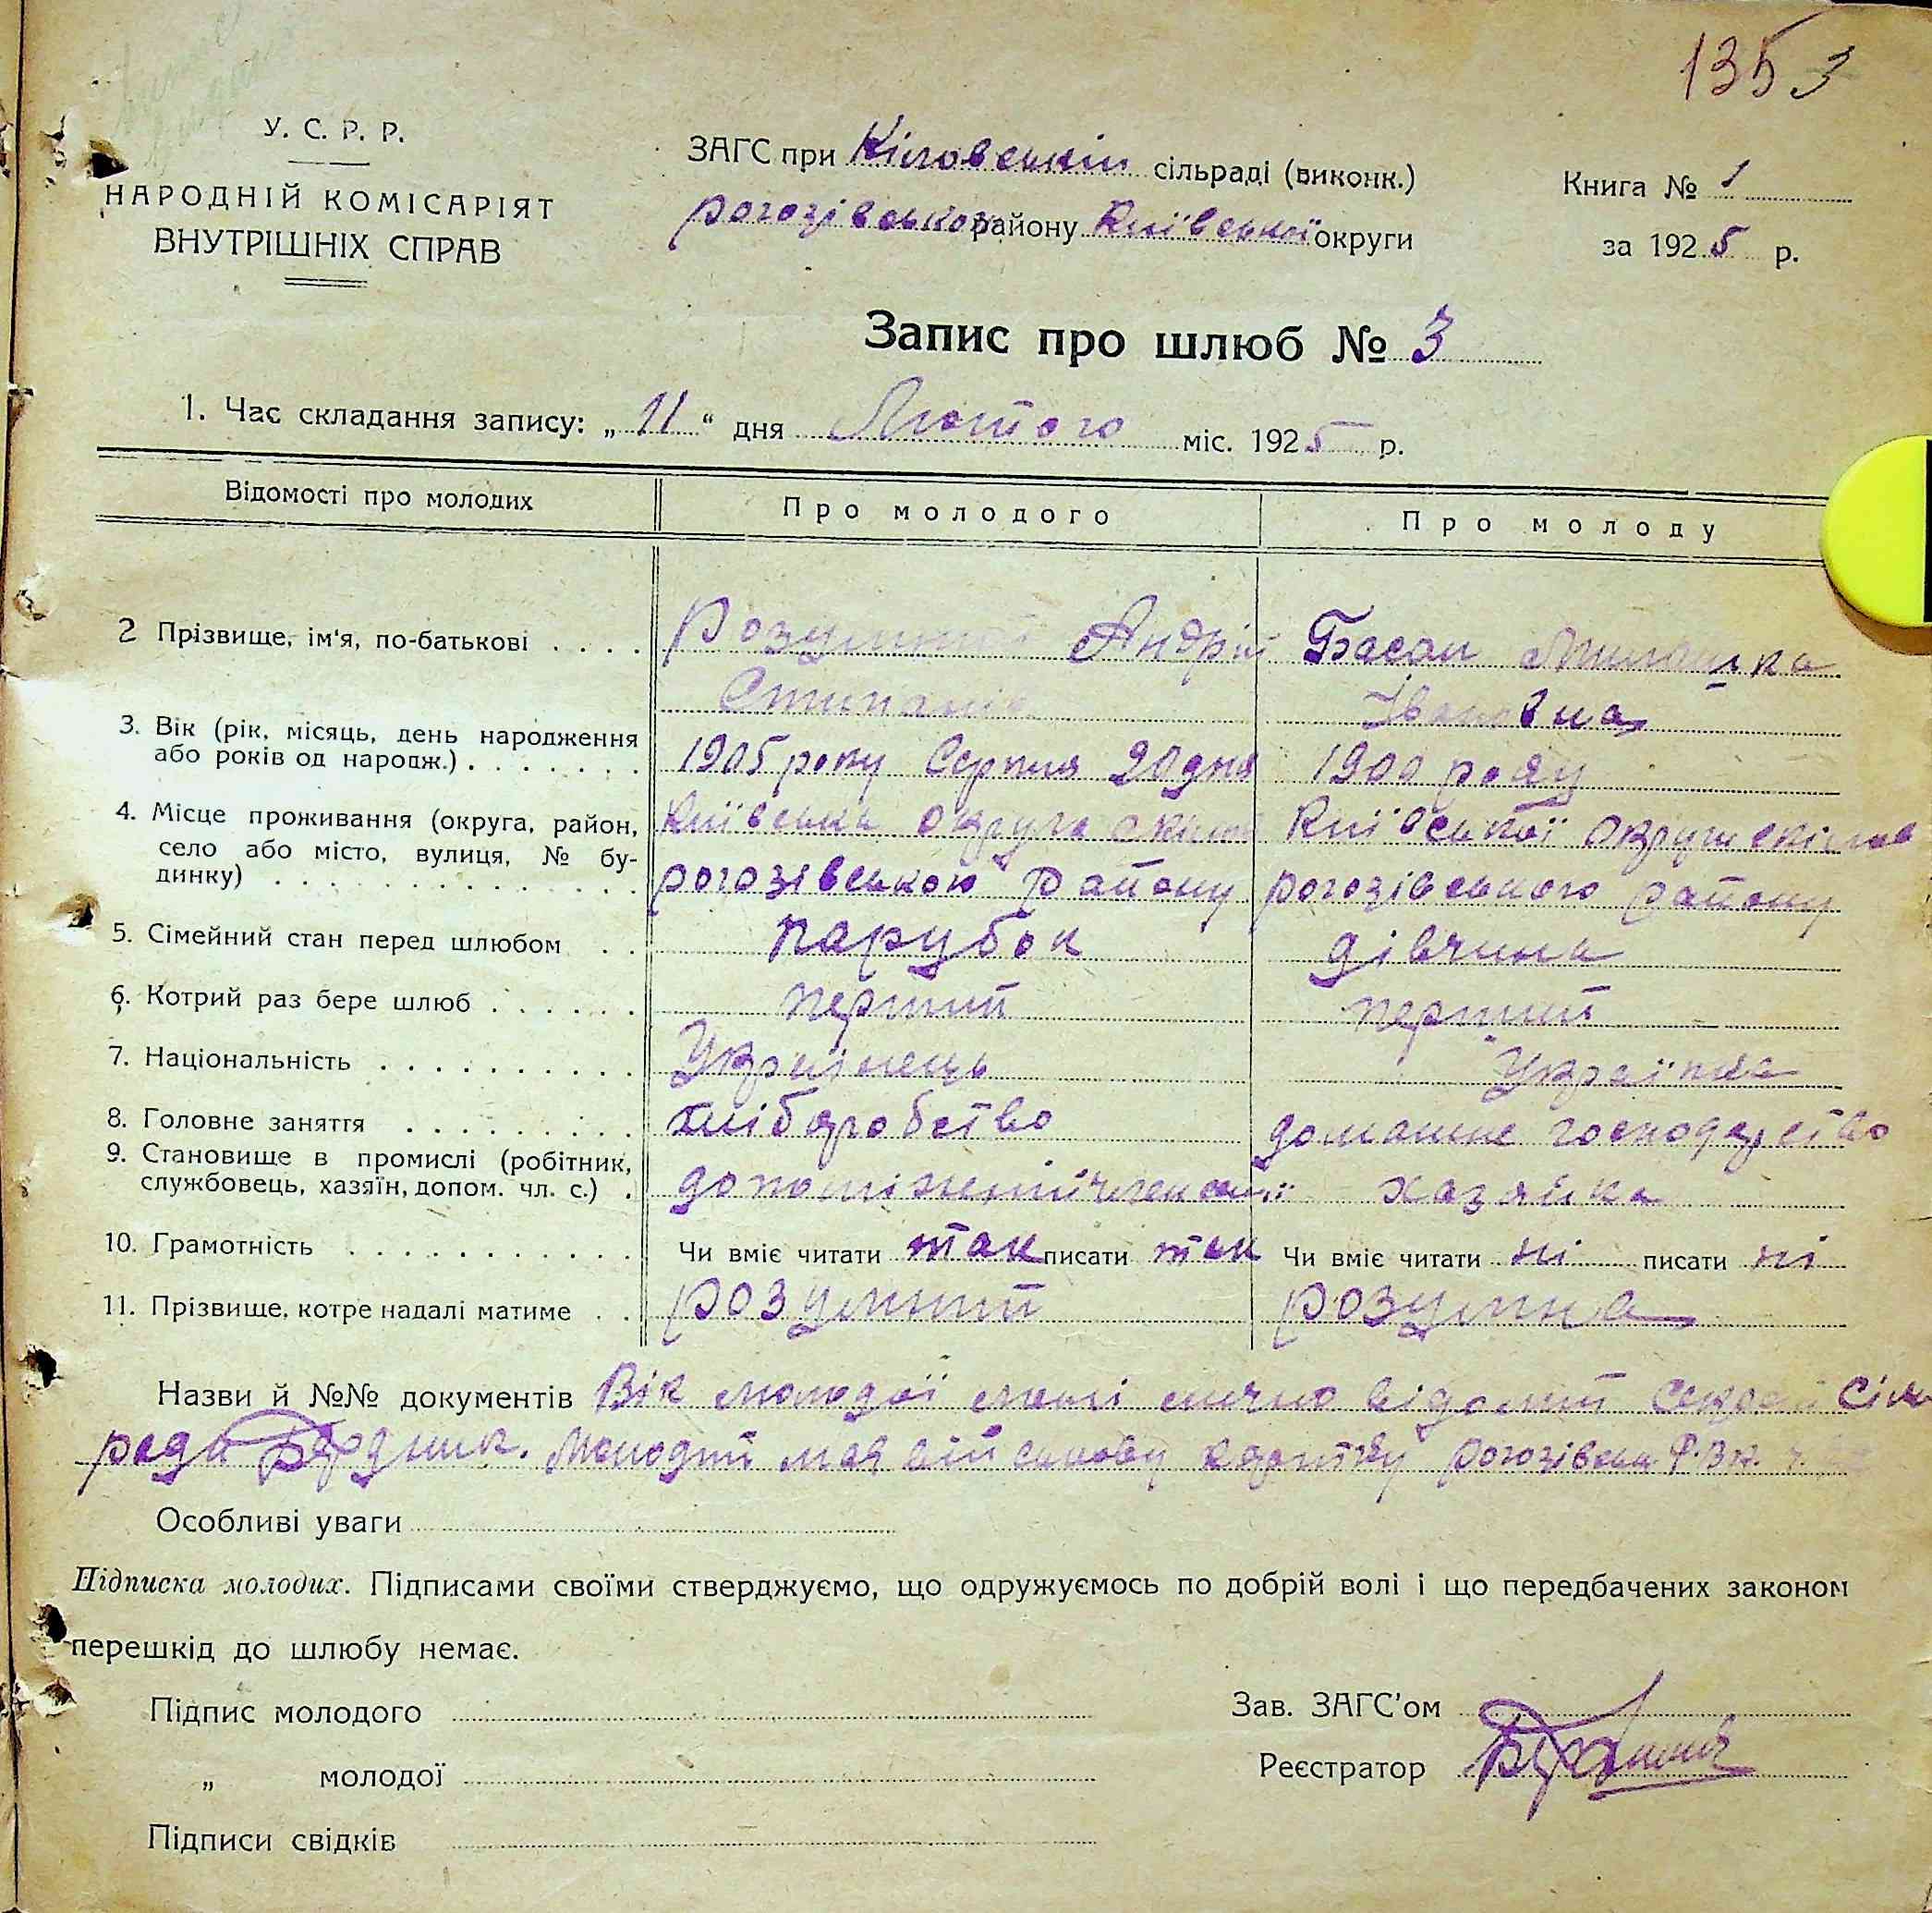 135 3
У. С. Р. Р.
НАРОДНІЙ КОМІСАРІЯТ
ВНУТРІШНІХ СПРАВ
ЗАГС при Кіловській сільраді (виконк.)
рогозівського району Київської округи
Книга № 1
за 1925 р.
Запис про шлюб № 3
1. Час складання запису: „ 11 “ дня Лютого міс. 1925 р.
Відомості про молодих
Про молодого
Про молоду
2 Прізвище, ім'я, по-батькові . . . .
Розумний Андрій
Басан
Івановна
3. Вік (рік, місяць, день народження
або років од народж.) . . . . . . .
1905 року Серпня 20 дня
1900 року
4. Місце проживання (округа, район,
село або місто, вулиця, № бу-
динку) . . . . . . . . . . . . . . .
Київська округа
рогозівського району
Київської округи
рогозівського району
5. Сімейний стан перед шлюбом . .
парубок
дівчина
6. Котрий раз бере шлюб . . . . . .
перший
перший
7. Національність . . . . . . . . . .
Українець
Українка
8. Головне заняття . . . . . . . . .
хліборобство
домашнє господарство
9. Становище в промислі (робітник,
службовець, хазяїн, допом. чл. с.) .
допоміжний член
хазяйка
10. Грамотність . . . . . . . . . . .
Чи вміє читати так писати так
Чи вміє читати ні писати ні
11. Прізвище, котре надалі матиме . .
розумний
розумна
Назви й №№ документів Вік молодої мені лично відомий Сіль
ради Молодий має військову картку Рогозівськ.
Особливі уваги
Підписка молодих. Підписами своїми стверджуємо, що одружуємось по добрій волі і що передбачених законом
перешкід до шлюбу немає.
Підпис молодого
„ молодої
Підписи свідків
Зав. ЗАГС'ом
Реєстратор